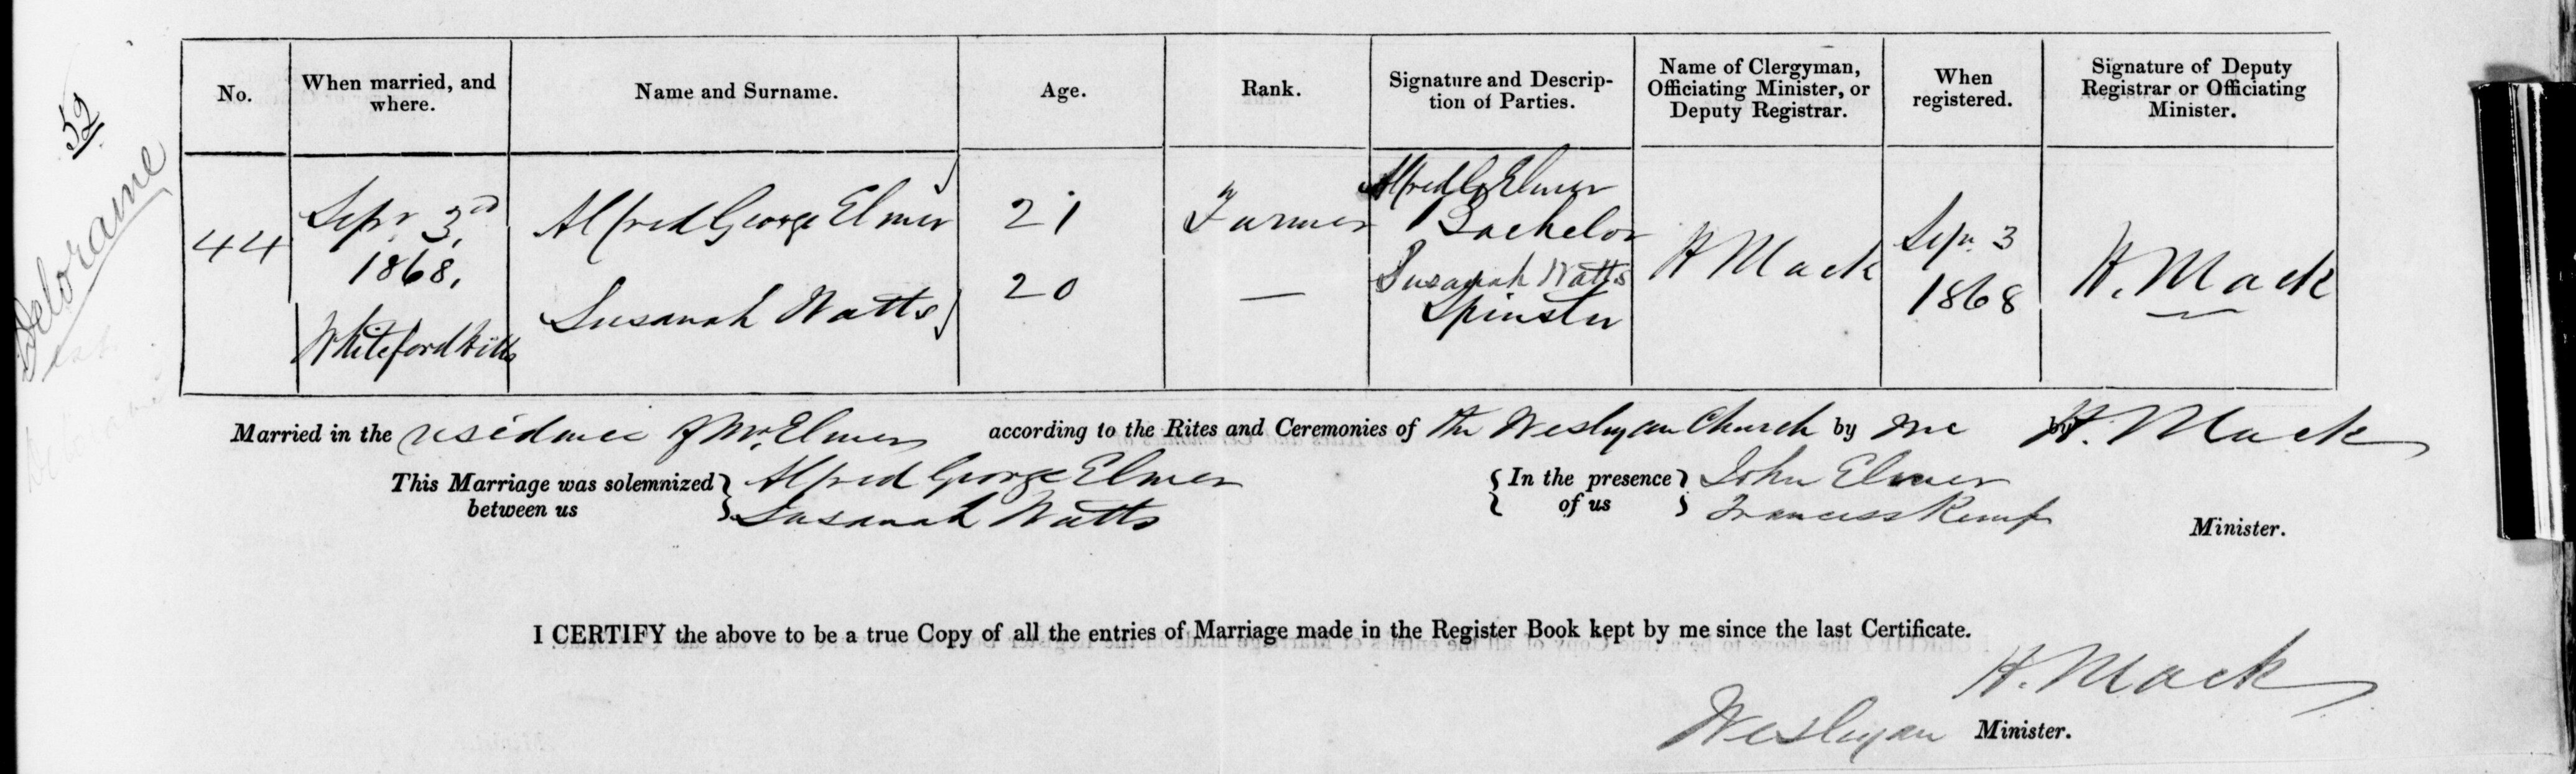 52
Deloraine
No.
When married, and
where.
Name and Surname.
Age.
Rank.
Signature and Descrip-
tion of Parties.
Name of Clergyman,
Officiating Minister, or
Deputy Registrar.
When
registered.
Signature of Deputy
Registrar or Officiating
Minister.
44
Sepr 3rd
1868,
Whitefordhills
Alfred George Elmer
Susanah Watts
21
20
Farmer
—
Alfred G Elmer
Bachelor
Susanah Watts
Spinster
H Mack
Sepr. 3
1868
H. Mack
Married in the residence of Mr. Elmer according to the Rites and Ceremonies of the Wesleyan Church by me by H. Mack
This Marriage was solemnized
between us
Alfred George Elmer
Susanah Watts
In the presence
of us
John Elmer
Francess Kemp
Minister.
I CERTIFY the above to be a true Copy of all the entries of Marriage made in the Register Book kept by me since the last Certificate.
H. Mack
Wesleyan Minister.